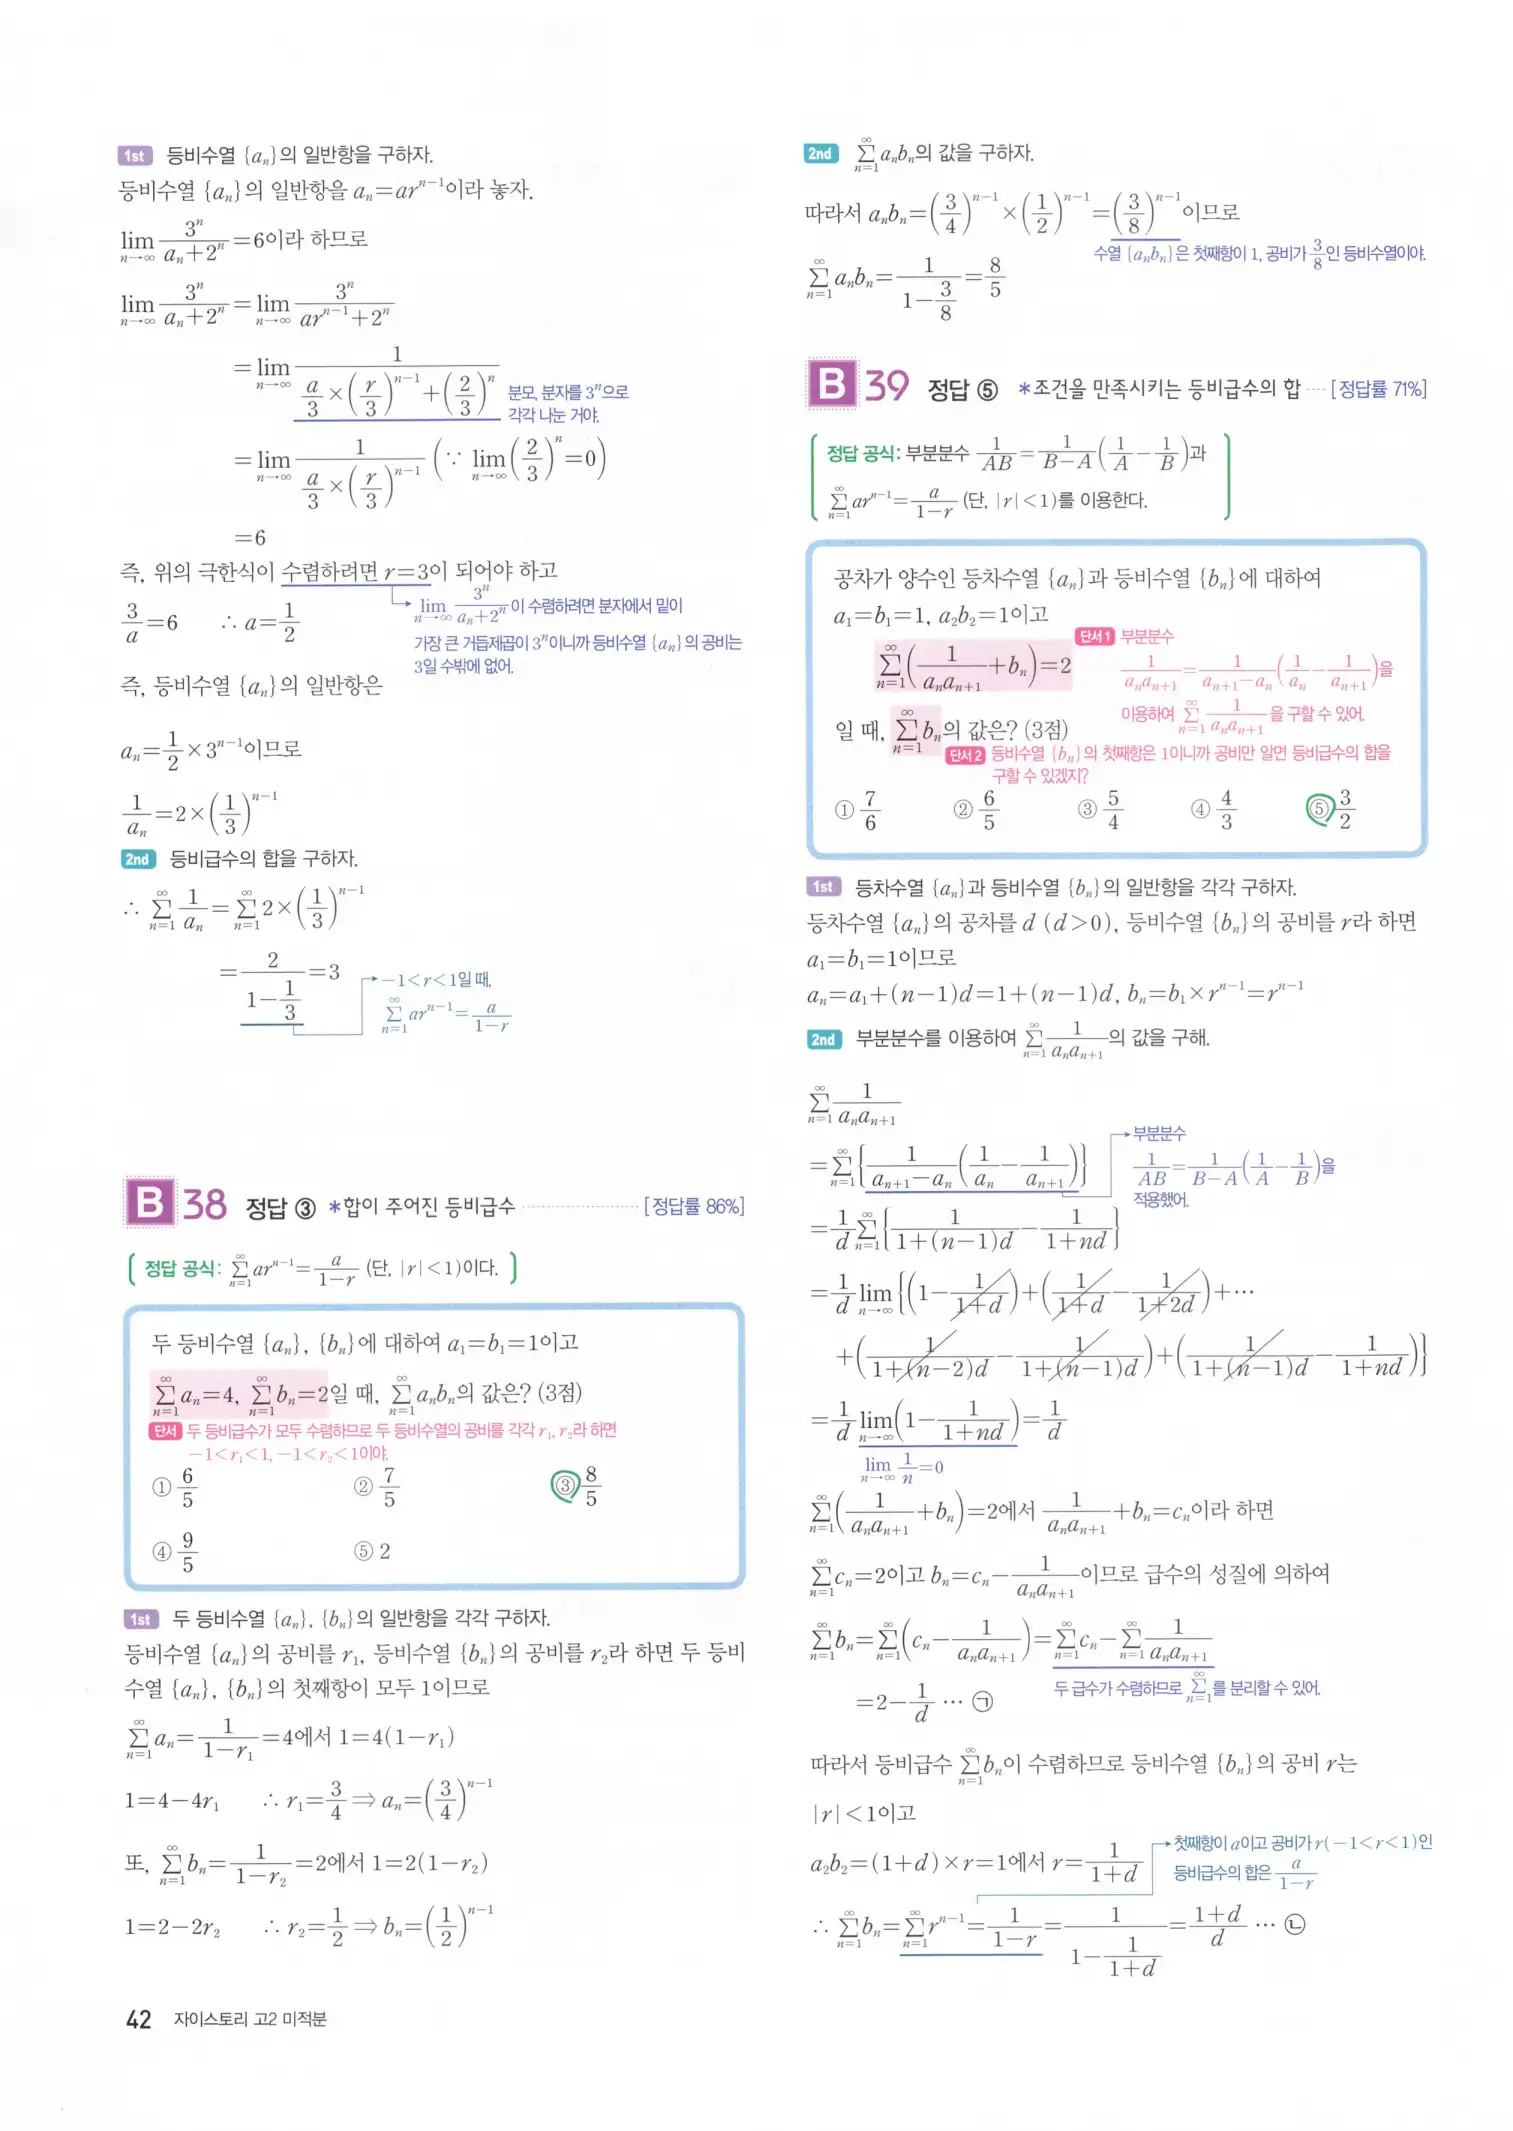 1st 등비수열 {aₙ}의 일반항을 구하자.
등비수열 {aₙ}의 일반항을 aₙ=arⁿ⁻¹이라 놓자.
lim_{n→∞} 3ⁿ/(aₙ+2ⁿ)=6이라 하므로
lim_{n→∞} 3ⁿ/(aₙ+2ⁿ)=lim_{n→∞} 3ⁿ/(arⁿ⁻¹+2ⁿ)
=lim_{n→∞} 1/(a/3×(r/3)ⁿ⁻¹+(2/3)ⁿ) 분모, 분자를 3ⁿ으로
각각 나눈 거야.
=lim_{n→∞} 1/(a/3×(r/3)ⁿ⁻¹) (∵ lim_{n→∞}(2/3)ⁿ=0)
=6
즉, 위의 극한식이 수렴하려면 r=3이 되어야 하고
3/a=6 ∴ a=1/2
lim_{n→∞} 3ⁿ/(aₙ+2ⁿ)이 수렴하려면 분자에서 밑이
가장 큰 거듭제곱이 3ⁿ이니까 등비수열 {aₙ}의 공비는
3일 수밖에 없어.
즉, 등비수열 {aₙ}의 일반항은
aₙ=1/2×3ⁿ⁻¹이므로
1/aₙ=2×(1/3)ⁿ⁻¹
2nd 등비급수의 합을 구하자.
∴ ∑_{n=1}^{∞} 1/aₙ=∑_{n=1}^{∞} 2×(1/3)ⁿ⁻¹
=2/(1−1/3)=3
−1<r<1일 때,
∑_{n=1}^{∞} arⁿ⁻¹=a/(1−r)
B 38 정답 ③ *합이 주어진 등비급수 [정답률 86%]
정답 공식: ∑_{n=1}^{∞} arⁿ⁻¹=a/(1−r) (단, |r|<1)이다.
두 등비수열 {aₙ}, {bₙ}에 대하여 a₁=b₁=1이고
∑_{n=1}^{∞} aₙ=4, ∑_{n=1}^{∞} bₙ=2일 때, ∑_{n=1}^{∞} aₙbₙ의 값은? (3점)
단서 두 등비급수가 모두 수렴하므로 두 등비수열의 공비를 각각 r₁, r₂라 하면
−1<r₁<1, −1<r₂<1이야.
① 6/5 ② 7/5 ③ 8/5
④ 9/5 ⑤ 2
1st 두 등비수열 {aₙ}, {bₙ}의 일반항을 각각 구하자.
등비수열 {aₙ}의 공비를 r₁, 등비수열 {bₙ}의 공비를 r₂라 하면 두 등비
수열 {aₙ}, {bₙ}의 첫째항이 모두 1이므로
∑_{n=1}^{∞} aₙ=1/(1−r₁)=4에서 1=4(1−r₁)
1=4−4r₁ ∴ r₁=3/4 ⇒ aₙ=(3/4)ⁿ⁻¹
또, ∑_{n=1}^{∞} bₙ=1/(1−r₂)=2에서 1=2(1−r₂)
1=2−2r₂ ∴ r₂=1/2 ⇒ bₙ=(1/2)ⁿ⁻¹
42 자이스토리 고2 미적분
2nd ∑_{n=1}^{∞} aₙbₙ의 값을 구하자.
따라서 aₙbₙ=(3/4)ⁿ⁻¹×(1/2)ⁿ⁻¹=(3/8)ⁿ⁻¹이므로
수열 {aₙbₙ}은 첫째항이 1, 공비가 3/8인 등비수열이야.
∑_{n=1}^{∞} aₙbₙ=1/(1−3/8)=8/5
B 39 정답 ⑤ *조건을 만족시키는 등비급수의 합 [정답률 71%]
정답 공식: 부분분수 1/AB=1/(B−A)(1/A−1/B)과
∑_{n=1}^{∞} arⁿ⁻¹=a/(1−r) (단, |r|<1)를 이용한다.
공차가 양수인 등차수열 {aₙ}과 등비수열 {bₙ}에 대하여
a₁=b₁=1, a₂b₂=1이고
단서1 부분분수
∑_{n=1}^{∞}(1/(aₙaₙ₊₁)+bₙ)=2
1/(aₙaₙ₊₁)=1/(aₙ₊₁−aₙ)(1/aₙ−1/aₙ₊₁)을
이용하여 ∑_{n=1}^{∞} 1/(aₙaₙ₊₁)을 구할 수 있어.
일 때, ∑_{n=1}^{∞} bₙ의 값은? (3점)
단서2 등비수열 {bₙ}의 첫째항은 1이니까 공비만 알면 등비급수의 합을
구할 수 있겠지?
① 7/6 ② 6/5 ③ 5/4 ④ 4/3 ⑤ 3/2
1st 등차수열 {aₙ}과 등비수열 {bₙ}의 일반항을 각각 구하자.
등차수열 {aₙ}의 공차를 d (d>0), 등비수열 {bₙ}의 공비를 r라 하면
a₁=b₁=1이므로
aₙ=a₁+(n−1)d=1+(n−1)d, bₙ=b₁×rⁿ⁻¹=rⁿ⁻¹
2nd 부분분수를 이용하여 ∑_{n=1}^{∞} 1/(aₙaₙ₊₁)의 값을 구해.
∑_{n=1}^{∞} 1/(aₙaₙ₊₁)
=∑_{n=1}^{∞}{1/(aₙ₊₁−aₙ)(1/aₙ−1/aₙ₊₁)}
부분분수
1/AB=1/(B−A)(1/A−1/B)을
적용했어.
=1/d ∑_{n=1}^{∞}{1/(1+(n−1)d)−1/(1+nd)}
=1/d lim_{n→∞}{(1−1/(1+d))+(1/(1+d)−1/(1+2d))+⋯
+(1/(1+(n−2)d)−1/(1+(n−1)d))+(1/(1+(n−1)d)−1/(1+nd))}
=1/d lim_{n→∞}(1−1/(1+nd))=1/d
lim_{n→∞} 1/n=0
∑_{n=1}^{∞}(1/(aₙaₙ₊₁)+bₙ)=2에서 1/(aₙaₙ₊₁)+bₙ=cₙ이라 하면
∑_{n=1}^{∞} cₙ=2이고 bₙ=cₙ−1/(aₙaₙ₊₁)이므로 급수의 성질에 의하여
∑_{n=1}^{∞} bₙ=∑_{n=1}^{∞}(cₙ−1/(aₙaₙ₊₁))=∑_{n=1}^{∞} cₙ−∑_{n=1}^{∞} 1/(aₙaₙ₊₁)
=2−1/d ⋯ ㉠
두 급수가 수렴하므로 ∑_{n=1}^{∞}를 분리할 수 있어.
따라서 등비급수 ∑_{n=1}^{∞} bₙ이 수렴하므로 등비수열 {bₙ}의 공비 r는
|r|<1이고
a₂b₂=(1+d)×r=1에서 r=1/(1+d)
첫째항이 a이고 공비가 r(−1<r<1)인
등비급수의 합은 a/(1−r)
∴ ∑_{n=1}^{∞} bₙ=∑_{n=1}^{∞} rⁿ⁻¹=1/(1−r)=1/(1−1/(1+d))=(1+d)/d ⋯ ㉡